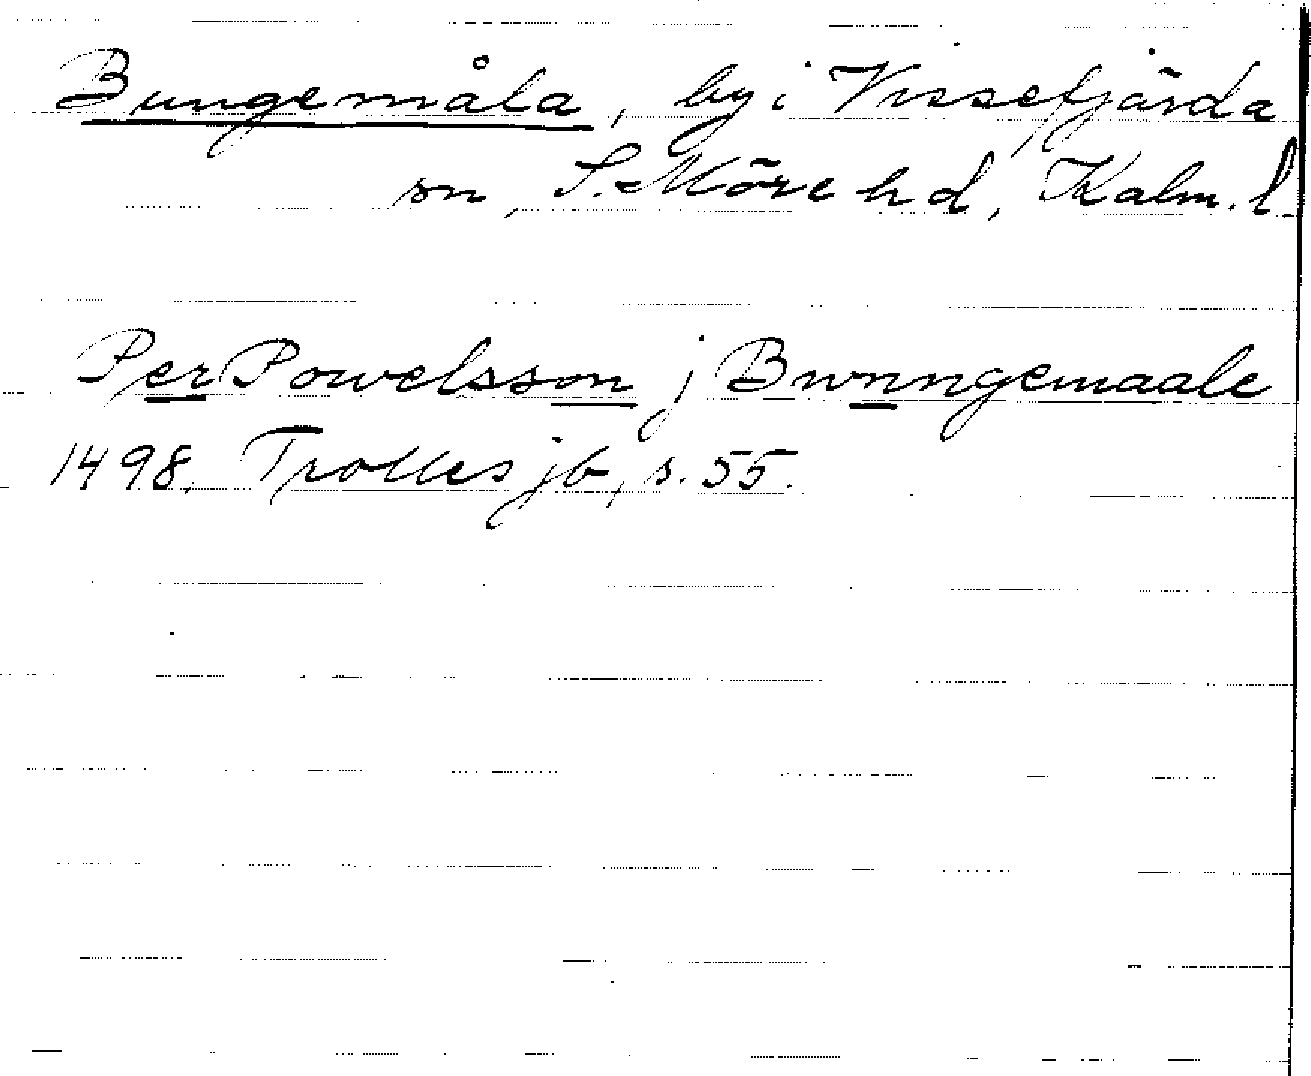 Bungemåla, by i Vissefjärda
sn, S. Möre hd, Kalm. l
Per Powelsson j Bwnngemaale
1498. Trolles jb, s. 55.